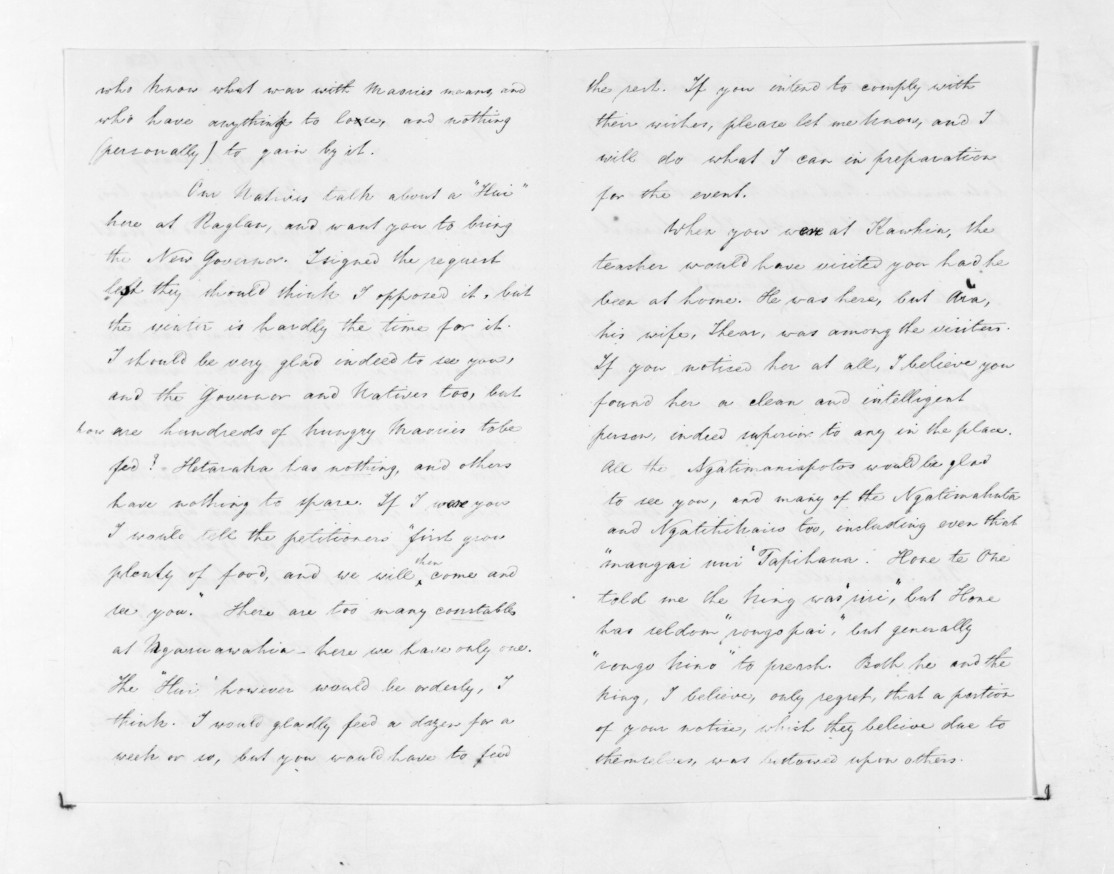 who know what war with Maories means, and
who have anything to lose, and nothing
(personally) to gain by it.
Our Natives talk about a "Hui"
here at Raglan, and want you to bring
the New Governor. I signed the request
lest they should think I opposed it, but
the winter is hardly the time for it.
I should be very glad indeed to see you,
and the Governor and Natives too, but
how are hundreds of hungry Maories to be
fed? Hetaraka has nothing, and others
have nothing to spare. If I were you
I would tell the petitioners "first grow
plenty of food, and we will then come and
see you." There are too many constables
at Ngaruawahia - here we have only one.
The "Hui" however would be orderly, I
think. I would gladly feed a dozen for a
week or so, but you would have to feed
the rest. If you intend to comply with
their wishes, please let me know, and I
will do what I can in preparation
for the event.
When you were at Kawhia, the
teacher would have visited you had he
been at home. He was here, but Ara,
his wife, I hear, was among the visitors.
If you noticed her at all, I believe you
found her a clean and intelligent
person, indeed superior to any in the place.
All the Ngatimaniapotos would be glad
to see you, and many of the Ngatimahuta
and Ngatihikairo too, including even that
"mangai nui" Tapihana. Hone te One
told me the King was "riri", but Hone
has seldom "rongo pai", but generally
"rongo kino" to preach. Both he and the
King, I believe, only regret, that a portion
of your notice, which they believe due to
themselves, was bestowed upon others.